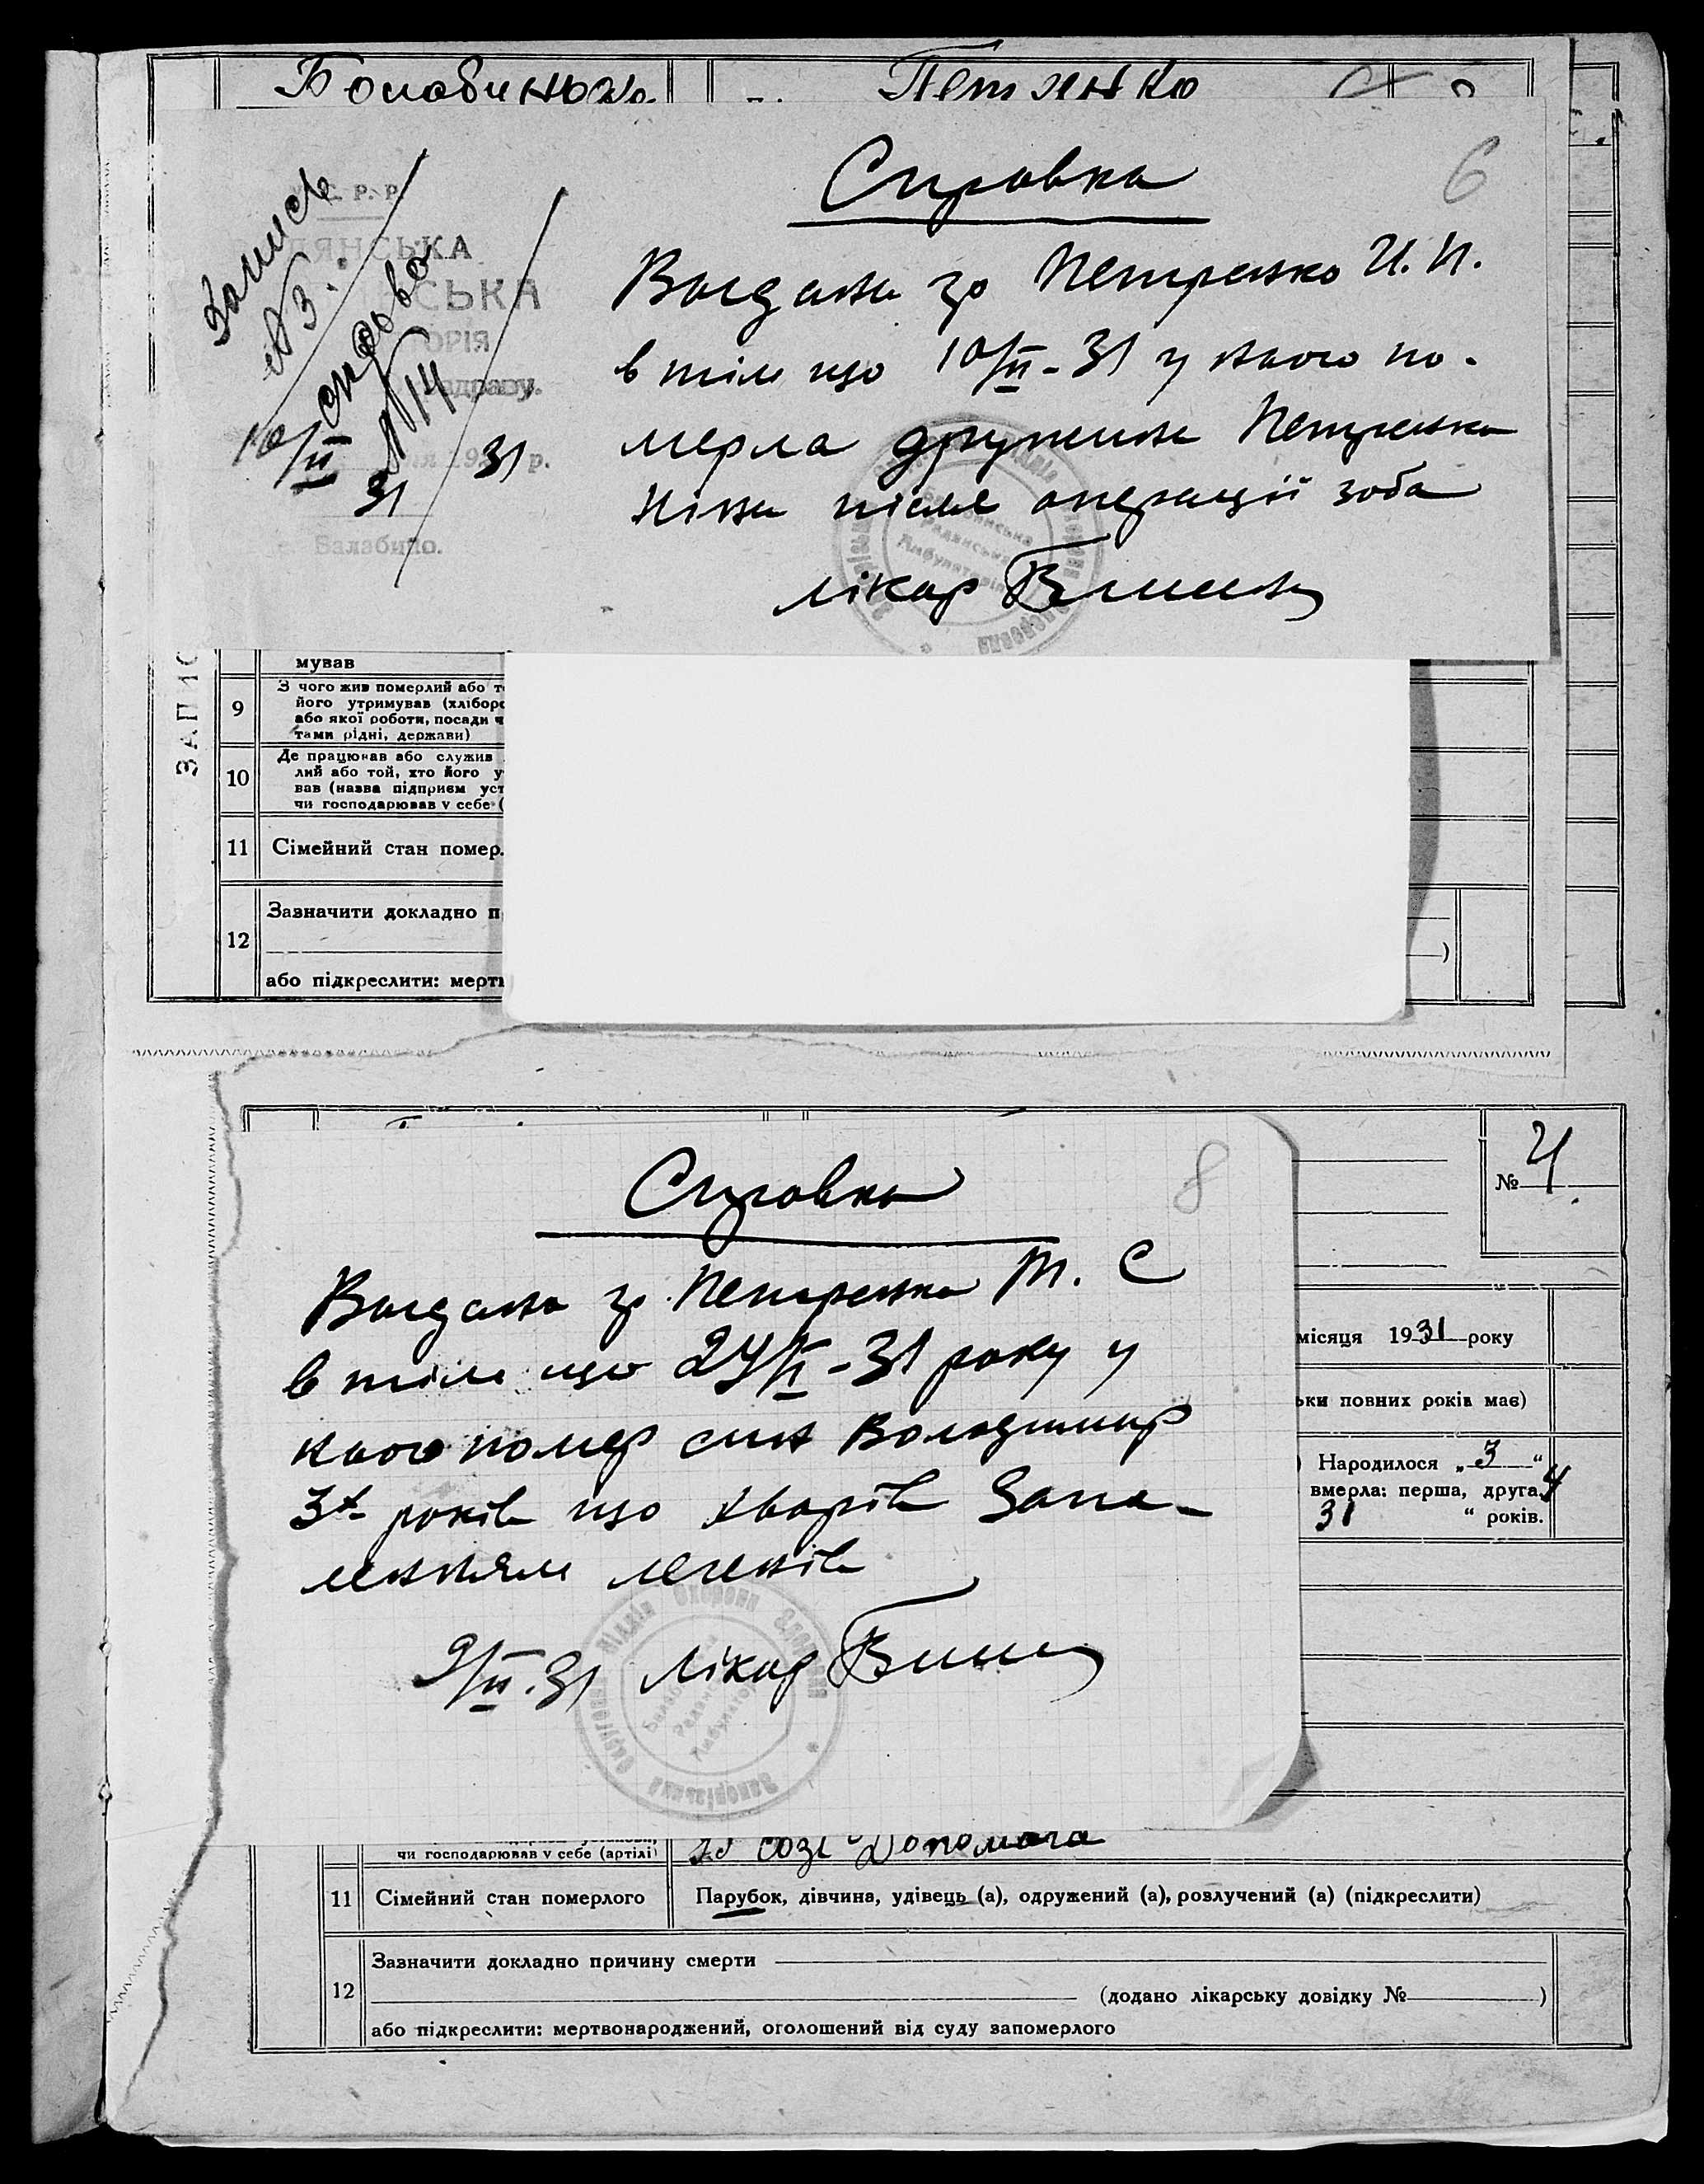 Петренко
6
Справка
Выдана гр Петренко И. П.
в тім що 10/II - 31 у нього по-
мерла дружина Петренко
Ніна після операції зоба
лікар
Запись
№3.
Р. Р
ДЯНСЬКА
СЬКА
ОРІЯ
адраву.
№14
10/II 31
31
192 р.
Балабино.
ЗАПИС
мував
9 З чого жив померлий або т
його утримував (хліборо
або якої роботи, посади ч
тами рідні, держави)
10 Де працював або служив
лий або той, хто його у
вав (назва підприєм уст
чи господарював у себе (
11 Сімейний стан помер.
Зазначити докладно п
12
)
або підкреслити: мертв
8
Справка
Выдана гр. Петренко М. С
в тім що 24/II - 31 року у
нього помер син Володимир
3х років що хворів Запа-
ленням легенів
9/II.31 лікар
Відділ Охорони Здоровля
Запорізька
№ 4.
місяця 1931 року
ьки повних років має)
) Народилося „3“
вмерла: перша, друга 4
31 “ років.
чи господарював у себе (артілі)
созі Допомога
11 Сімейний стан померлого Парубок, дівчина, удівець (а), одружений (а), розлучений (а) (підкреслити)
Зазначити докладно причину смерти
12 (додано лікарську довідку № )
або підкреслити: мертвонароджений, оголошений від суду запомерлого